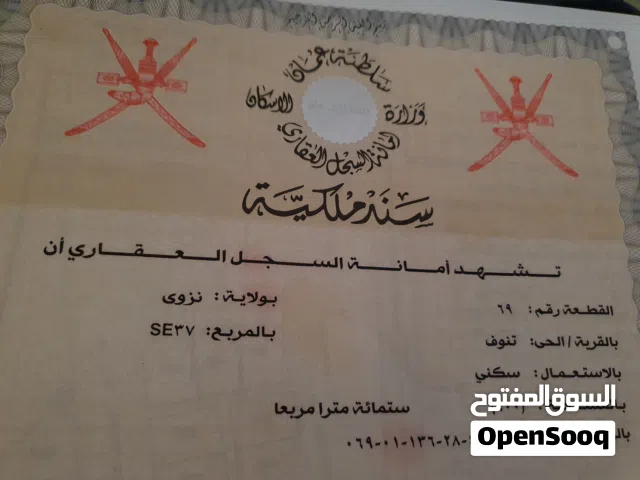 بسم الله الرحمن الرحيم
سلطنة عمان
وزارة الاسكان
امانة السجل العقاري
سند ملكية
تشهد أمانة السجل العقاري أن
القطعة رقم: ٦٩ بولاية: نزوى
بالقرية/الحى: تنوف بالمربع: SE٣٧
بالاستعمال: سكني
ستمائة مترا مربعا
٠٦٩-٠١-١٣٦-٢٨-
السوق المفتوح
OpenSooq